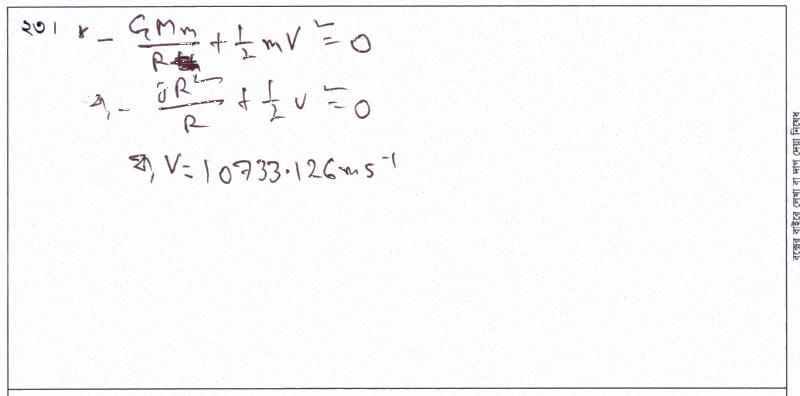 ২৩। * - GMm/R + 1/2 mV² = 0
বা, - gR²/R + 1/2 v² = 0
বা, V = 10733.126 ms⁻¹
বক্সের বাইরে লেখা বা দাগ দেয়া নিষেধ